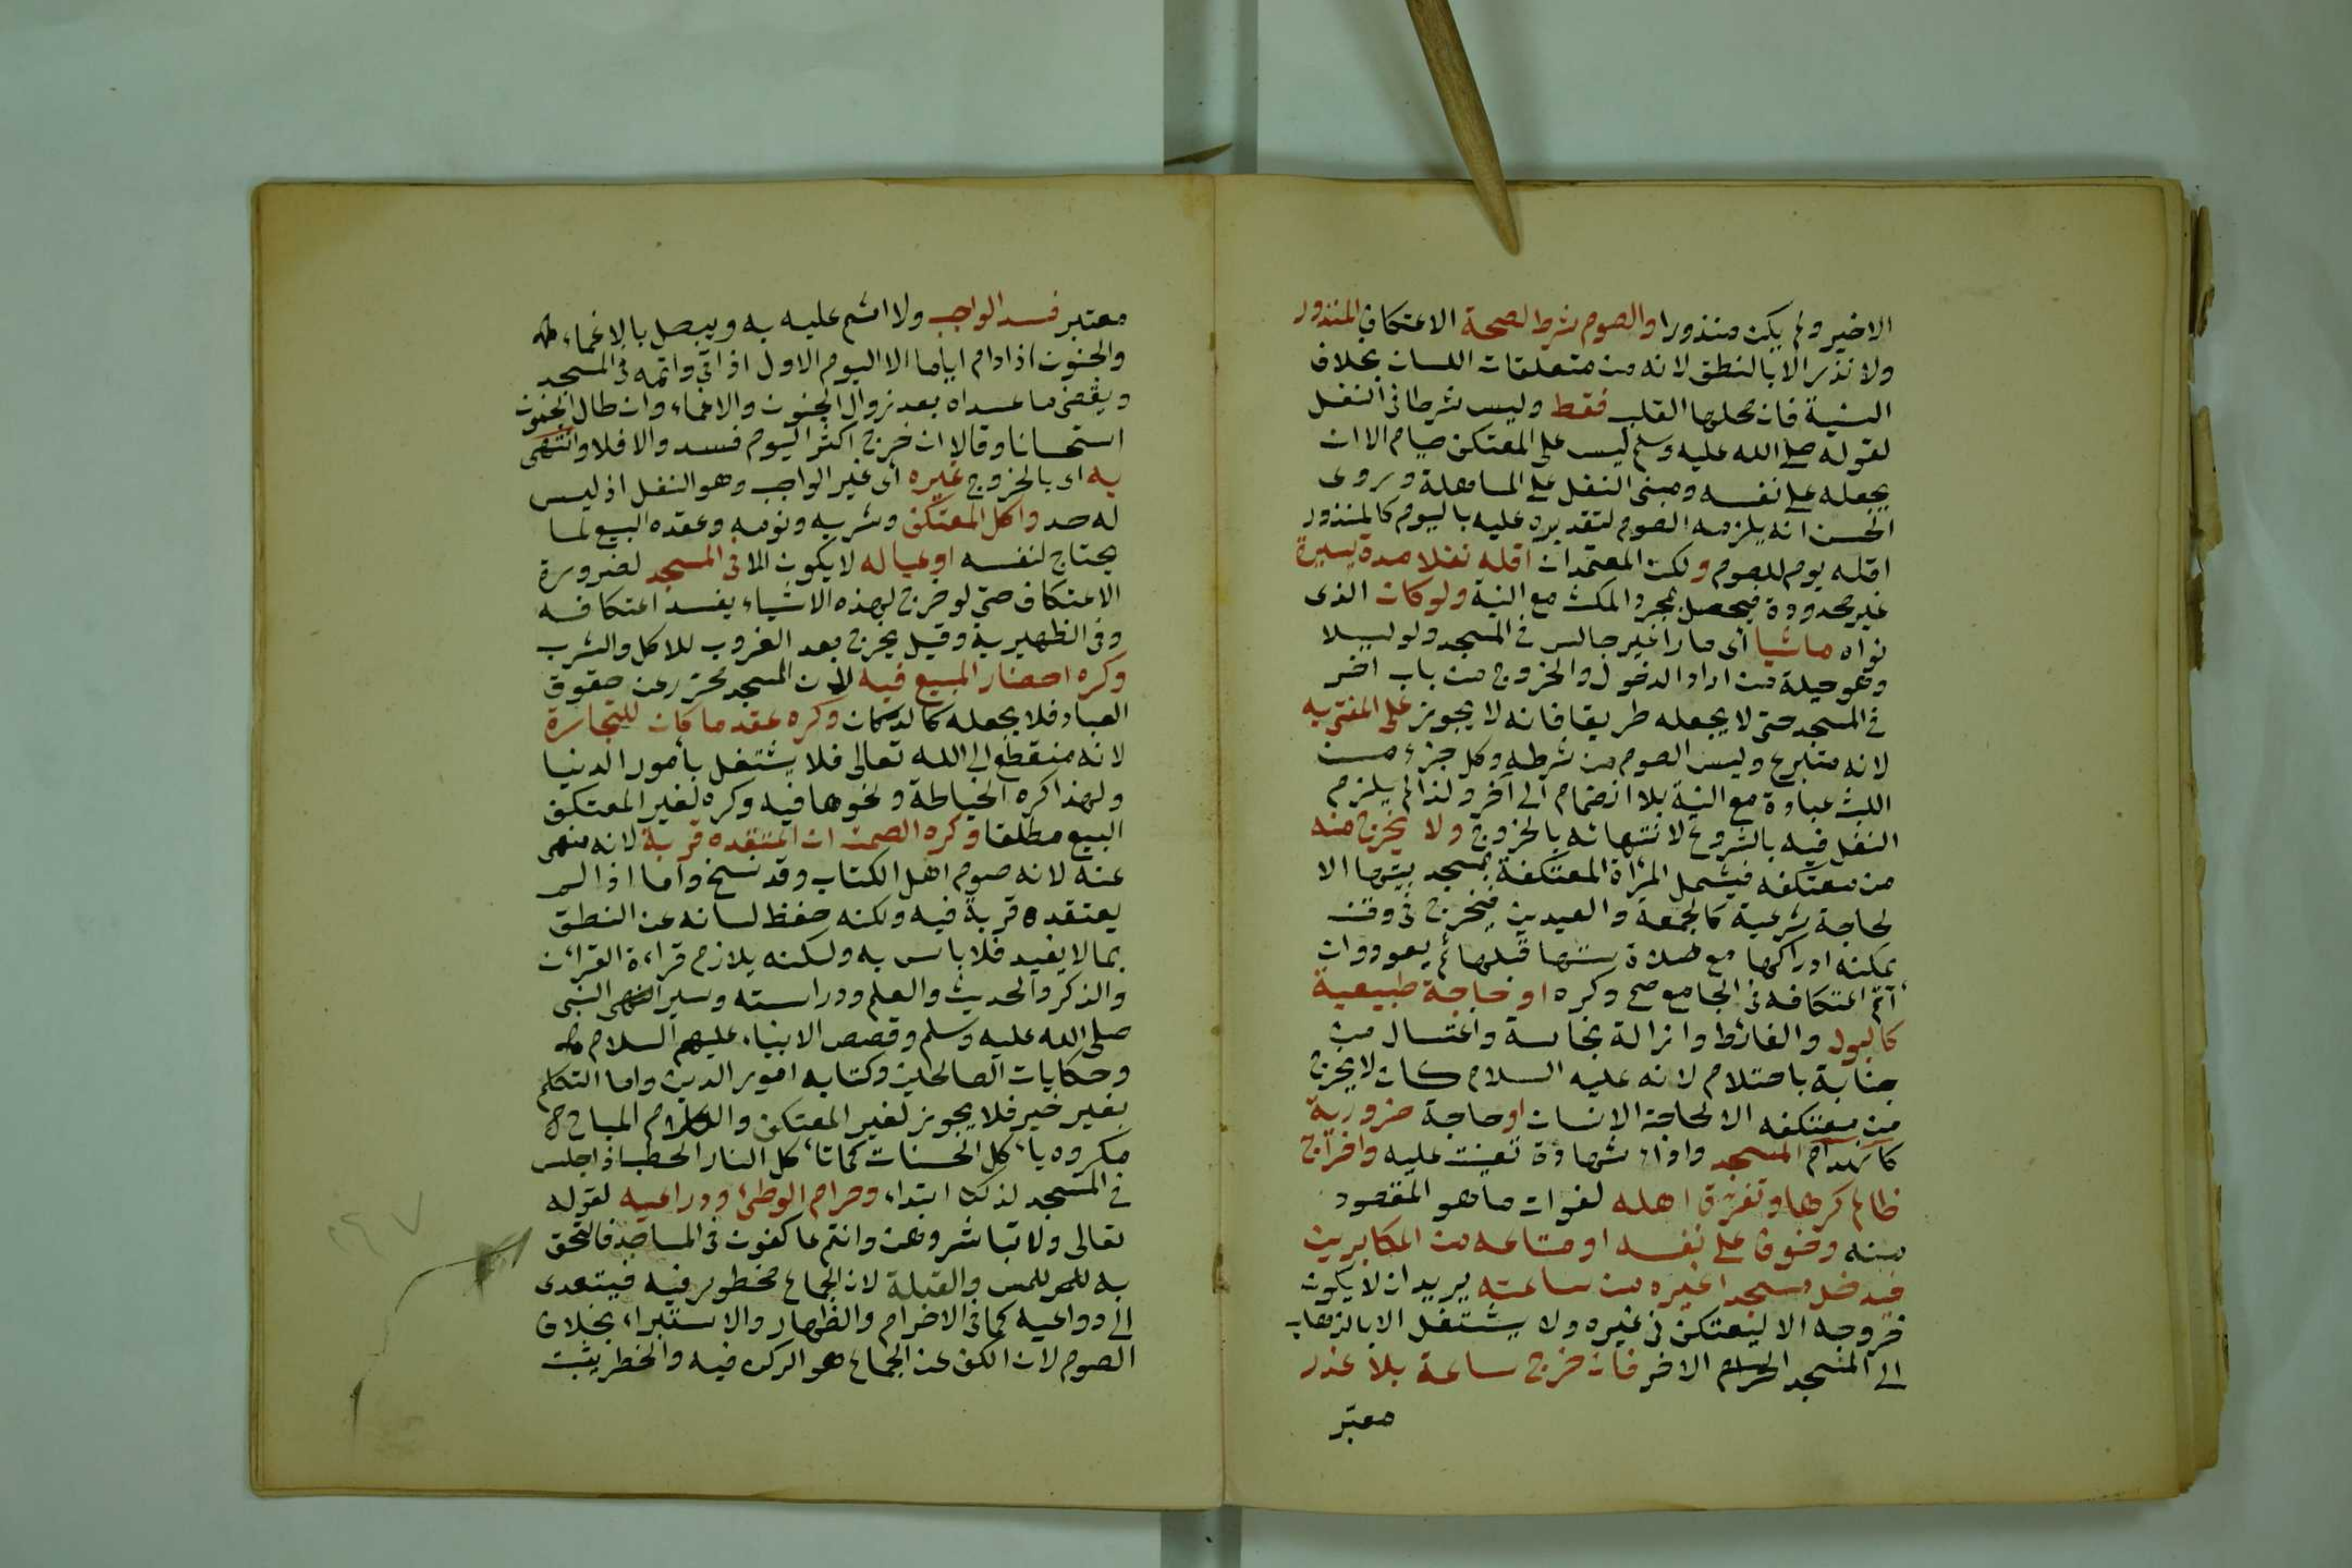 الاخير ولم يكن منذورا والصوم شرط لصحة الاعتكاف المنذور
ولا نذر الا بالنطق لانه من متعلقات اللسان بخلاف
النية فان محلها القلب فقط وليس شرطا في النفل
لقوله صلى الله عليه وسلم ليس على المعتكف صيام الا ان
يجعله على نفسه ومبنى النفل على المساهلة وروى
الحسن انه يلزمه الصوم لتقديره عليه باليوم كالمنذور
اقله يوم للصوم ولكن المعتمد ان اقله نفلا مدة يسيرة
غير محدودة فيحصل بمجرد المكث مع النية ولو كان الذى
نواه ماشيا أى مارا غير جالس فى المسجد ولو ليلا
وهو حيلة من اراد الدخول والخروج من باب اخر
في المسجد حتى لا يجعله طريقا فانه لا يجوز على المفتى به
لانه متبرع وليس الصوم من شرطه وكل جزء من
اللبث عبادة مع النية بلا انضمام الى آخر ولذا لم يلزم
النفل فيه بالشروع لانتهائه بالخروج ولا يخرج منه
من معتكفه فيشمل المرأة المعتكفة بمسجد بيتها الا
لحاجة شرعية كالجمعة والعيدين فيخرج فى وقت
يمكنه ادراكها مع صلاة سنتها قبلها ثم يعود وان
أتم اعتكافه فى الجامع صح وكره او حاجة طبيعية
كالبول والغائط وازالة نجاسة واغتسال من
جنابة باحتلام لانه عليه السلام كان لا يخرج
من معتكفه الا لحاجة الانسان او حاجة ضرورية
كانهدام المسجد واداء شهادة تعينت عليه واخراج
ظالم كرها وتفرق اهله لفوات ما هو المقصود
منه وخوف على نفسه او متاعه من المكابرين
فيدخل مسجدا غيره من ساعته يريد ان لا يكون
خروجه الا ليعتكف فى غيره ولا يشتغل الا بالذهاب
الى المسجد الحرام الاخر فان خرج ساعة بلا عذر
معتبر
معتبر فسد الواجب ولا اثم عليه به ويبطل بالاغماء
والجنون اذا دام اياما الا اليوم الاول اذا بقى واتمه فى المسجد
ويقضى ما عداه بعد زوال الجنون والاغماء وان طال الجنون
استحسانا وقالا ان خرج اكثر اليوم فسد والا فلا وانتهى
به اى بالخروج غيره أى غير الواجب وهو النفل اذ ليس
له حد واكل المعتكف وشربه ونومه وعقده البيع لما
يحتاج لنفسه او عياله لا يكون الا فى المسجد لضرورة
الاعتكاف حتى لو خرج لهذه الاشياء يفسد اعتكافه
وفى الظهيرية وقيل يخرج بعد الغروب للاكل والشرب
وكره احضار المبيع فيه لان المسجد محترز عن حقوق
العباد فلا يجعله كالدكان وكره عقد ما كان للتجارة
لانه منقطع الى الله تعالى فلا يشتغل بأمور الدنيا
ولهذا كره الخياطة ونحوها فيه وكره لغير المعتكف
البيع مطلقا وكره الصمت ان اعتقده قربة لانه منهى
عنه لانه صوم اهل الكتاب وقد نسخ واما اذا لم
يعتقده قربة فيه ولكنه حفظ لسانه عن النطق
بما لا يفيد فلا باس به ولكنه يلازم قراءة القرآن
والذكر والحديث والعلم ودراسته وسير النبى
صلى الله عليه وسلم وقصص الانبياء عليهم السلام
وحكايات الصالحين وكتابه امور الدين واما التكلم
بغير خير فلا يجوز لغير المعتكف والكلام المباح
مكروه يأكل الحسنات كما تأكل النار الحطب اذا جلس
فى المسجد لذلك ابتداء وحرام الوطئ ودواعيه لقوله
تعالى ولا تباشروهن وانتم عاكفون فى المساجد فالتحق
به اللمس والقبلة لان الجماع محظور فيه فيتعدى
الى دواعيه كما فى الاحرام والظهار والاستبراء بخلاف
الصوم لان الكف عن الجماع هو الركن فيه والحظر يثبت